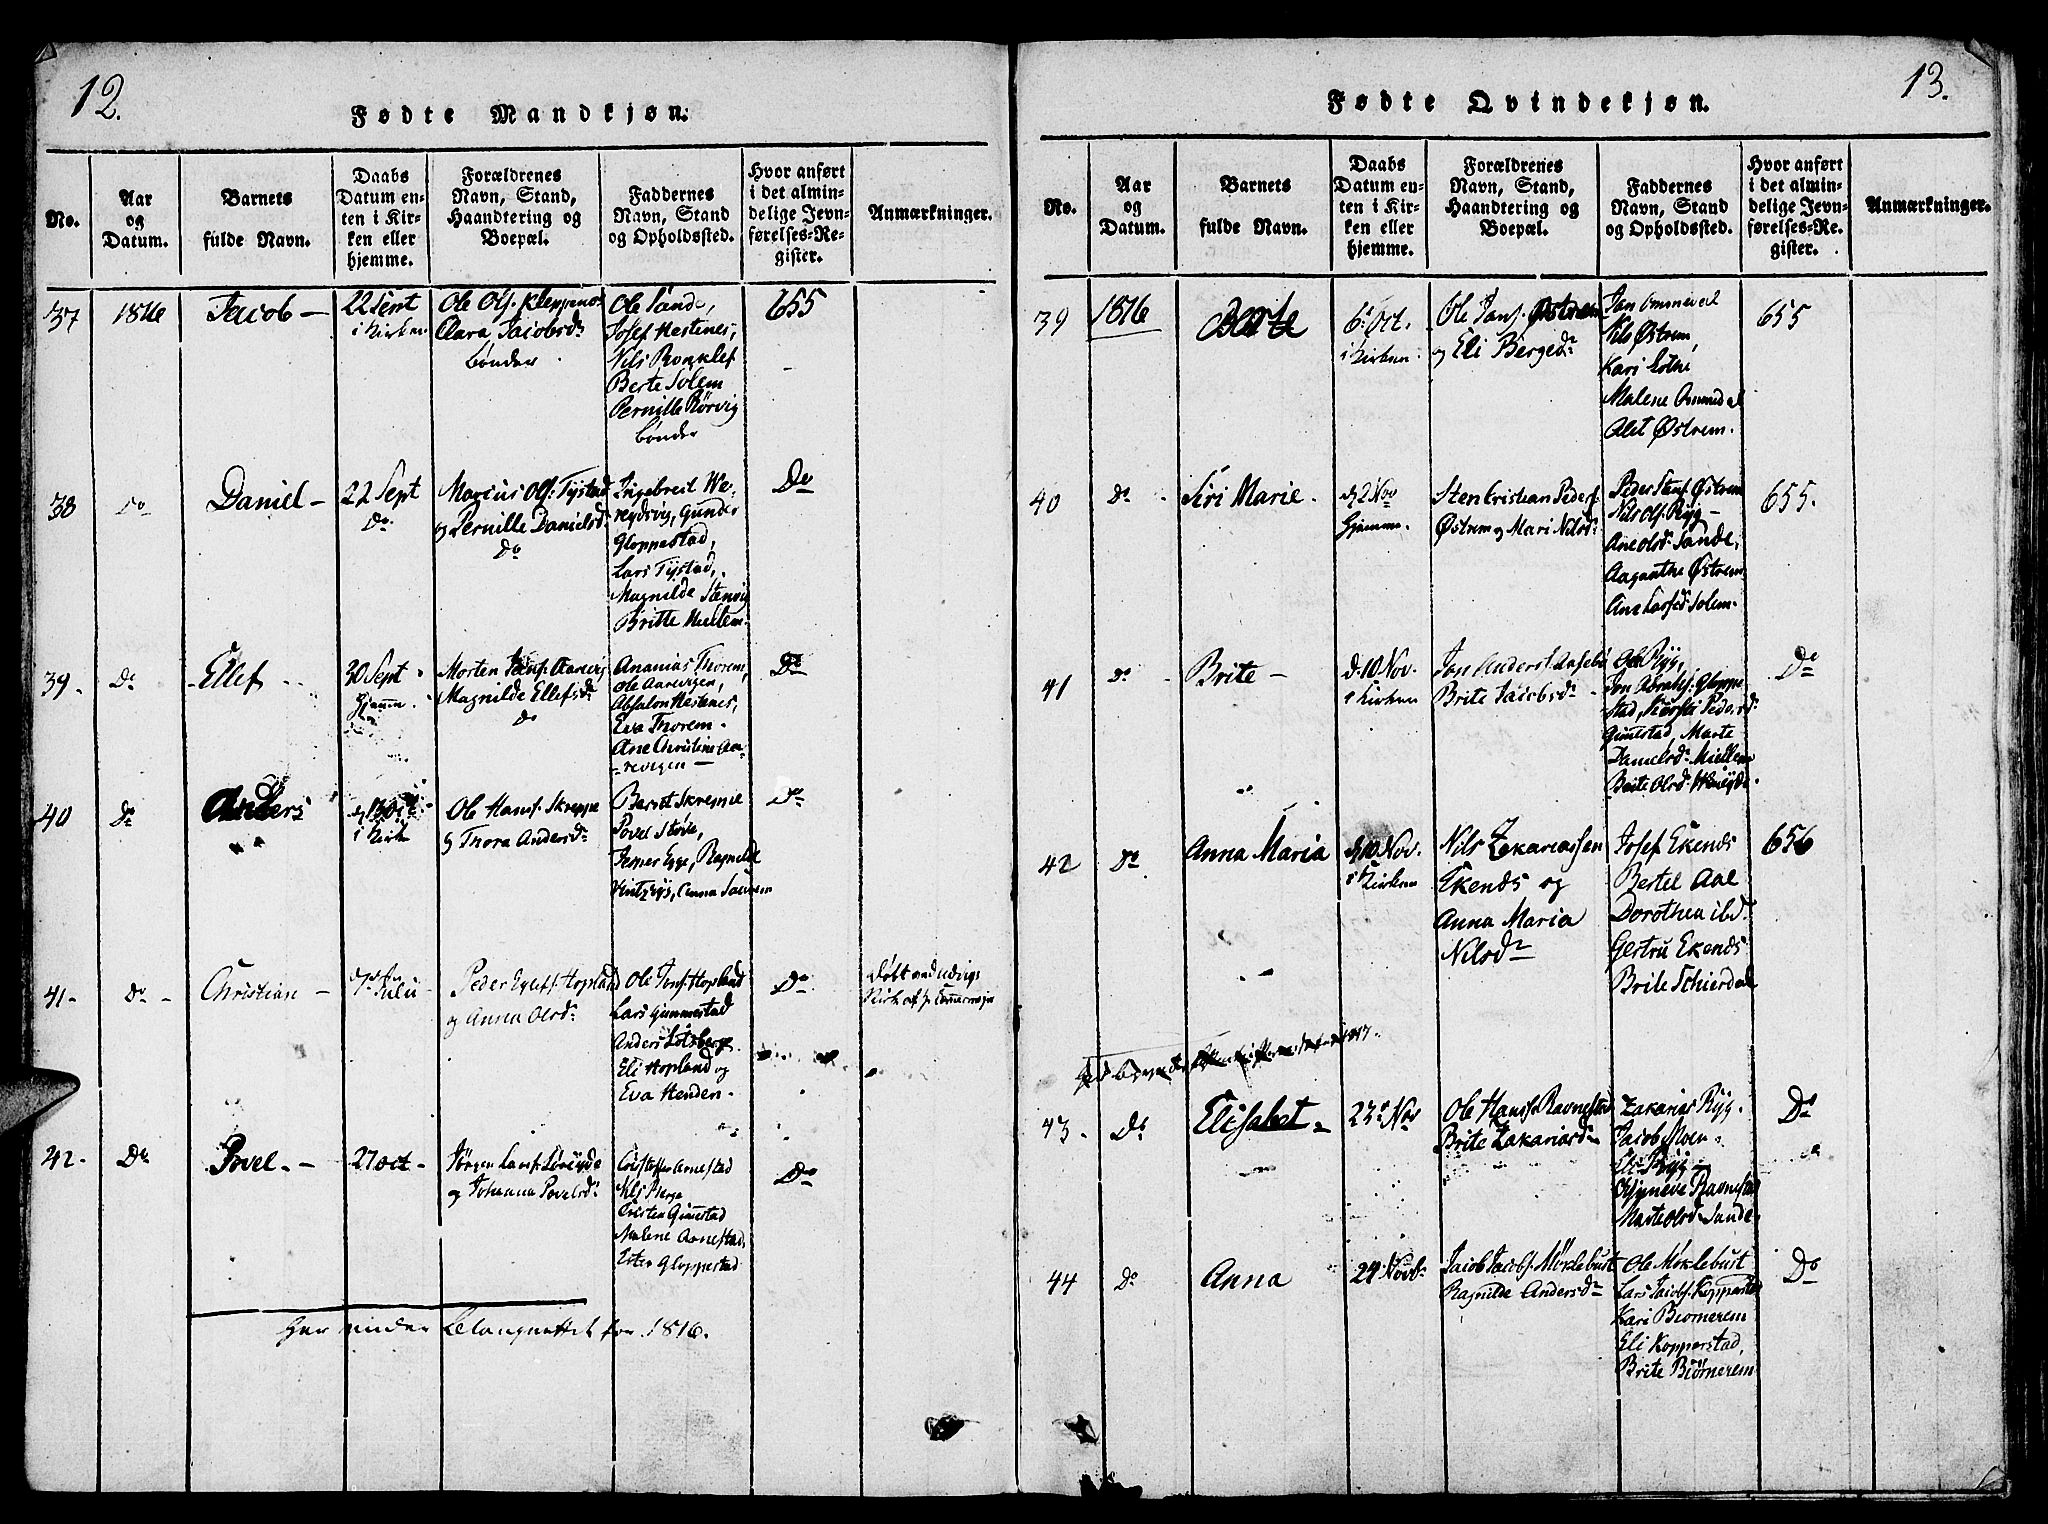 12.
Fødte Mandkjøn.
No.
Aar
og
Datum.
Barnets
fulde Navn.
Daabs
Datum en-
ten i Kir-
ken eller
hjemme.
Forældrenes
Navn, Stand,
Haandtering og
Boepæl.
Faddernes
Navn, Stand
og Opholdssted.
Hvor anført
i det almin-
delige Jevn-
førelses-Re-
gister.
Anmærkninger.
37 1816 Jacob — 22 Sept
i Kirken
Ole Ols. Kleppenes
Clara Jacobsdr
bønder
Ole Sande,
Josef Hestenes,
Nils Ronklef
Berte Solem
Pernille Rörvig
bönder
655
38 Do Daniel — 22 Sept
Do
Marius Ols: Tystad
og Pernille Danielsdr
Do
Ingebreit We-
reydsvig, Gunder
Gloppestad,
Lars Tystad,
Magnilde Stenvig
Britte Mullem.
Do
39. Do Ellef 30 Sept
Hjemm
Morten Aarevig
Magnilde Ellefsdr
Do
Ananias Thorem,
Ole Aarevigen,
Absalon Hestenes,
Eva Thorem.
Ane Christine Aa-
revigen —
Do
40 Do Anders
i Kirk
Ole Hans. Skreppe
og Thora Andersdr
Bernt Skreppe
Povel Støve,
Egge, Ragnilde
Anna
Do
41. Do — Christian — 7de Juli
Peder Ellefs. Hopland
og Anna Olsdr
Ole Jens. Hopland
Lars Gimmestad
Anders Lotsberg
Eli Hopland og
Eva Henden.
Do
Døbt ved
Kirk af
42. Do Povel. — 27 oct.
Jörgen Lars. Löteyde
og Johanna Povelsdr
Cristoffer Arnestad
Nils Berge
Cristen Gimestad
Malene Arnestad,
Ester Gloppestad
Do
for 1816.
13.
Fødte Qvindekjøn.
No.
Aar
og
Datum.
Barnets
fulde Navn.
Daabs
Datum en-
ten i Kir-
ken eller
hjemme.
Forældrenes
Navn, Stand,
Haandtering og
Boepæl.
Faddernes
Navn, Stand
og Opholdssted.
Hvor anført
i det almin-
delige Jevn-
førelses-Re-
gister.
Anmærkninger.
39 1816 Berte 6te Oct.
i Kirken
Ole Jans. Østrem
og Eli Bergedr
Jan Ommedal
Nils Østrem,
Kari Lothe
Malene Ommedal
Alet Østrem.
655
40 Do Siri Marie. d. 2 Nov
Hjemme.
Sten Cristian Peders
Østrem og Mari Nilsdr
Peder Stens. Østrem
Nils Ols. Ryg —
Ane Olsd. Sande,
Aaganthe Østrem
Ane Larsd. Solem.
655.
41 Do Brite — d. 10 Nov.
i Kirken
Jon Anders. Aasebø
Brite Jacobsdr
Ole Ryg,
Jon Abrahs. Gloppe-
stad, Kiersti Pedersd.
Gimestad, Marte
Danielsd. Miellem
Brite Olsd.
Do
42 Do Anna Maria d. 10 Nov.
i Kirken
Nils Zekariassen
Ekends og
Anna Maria
Nilsdr
Josef Ekends
Bertel Aae
Dorothea ibd.
Gertru Ekends
Brite Schierdal
656
1817.
43. Do Elisabet. 23de Nov
Ole Hans. Ravnestad
Brite Zakariasdr
Zakarias Ryg.
Jacob Moen.
Eli Ryg
Synneve Ravnestad
Marte Olsd. Sande,
Do
44 Do Anna 24 Novb.
Jacob Jacobs. Möklebust
Ragnilde Andersdr
Ole Möklebust
Lars Jacobs. Kopperstad
Kari Biornerem
Eli Kopperstad,
Brite Biörnerem
Do